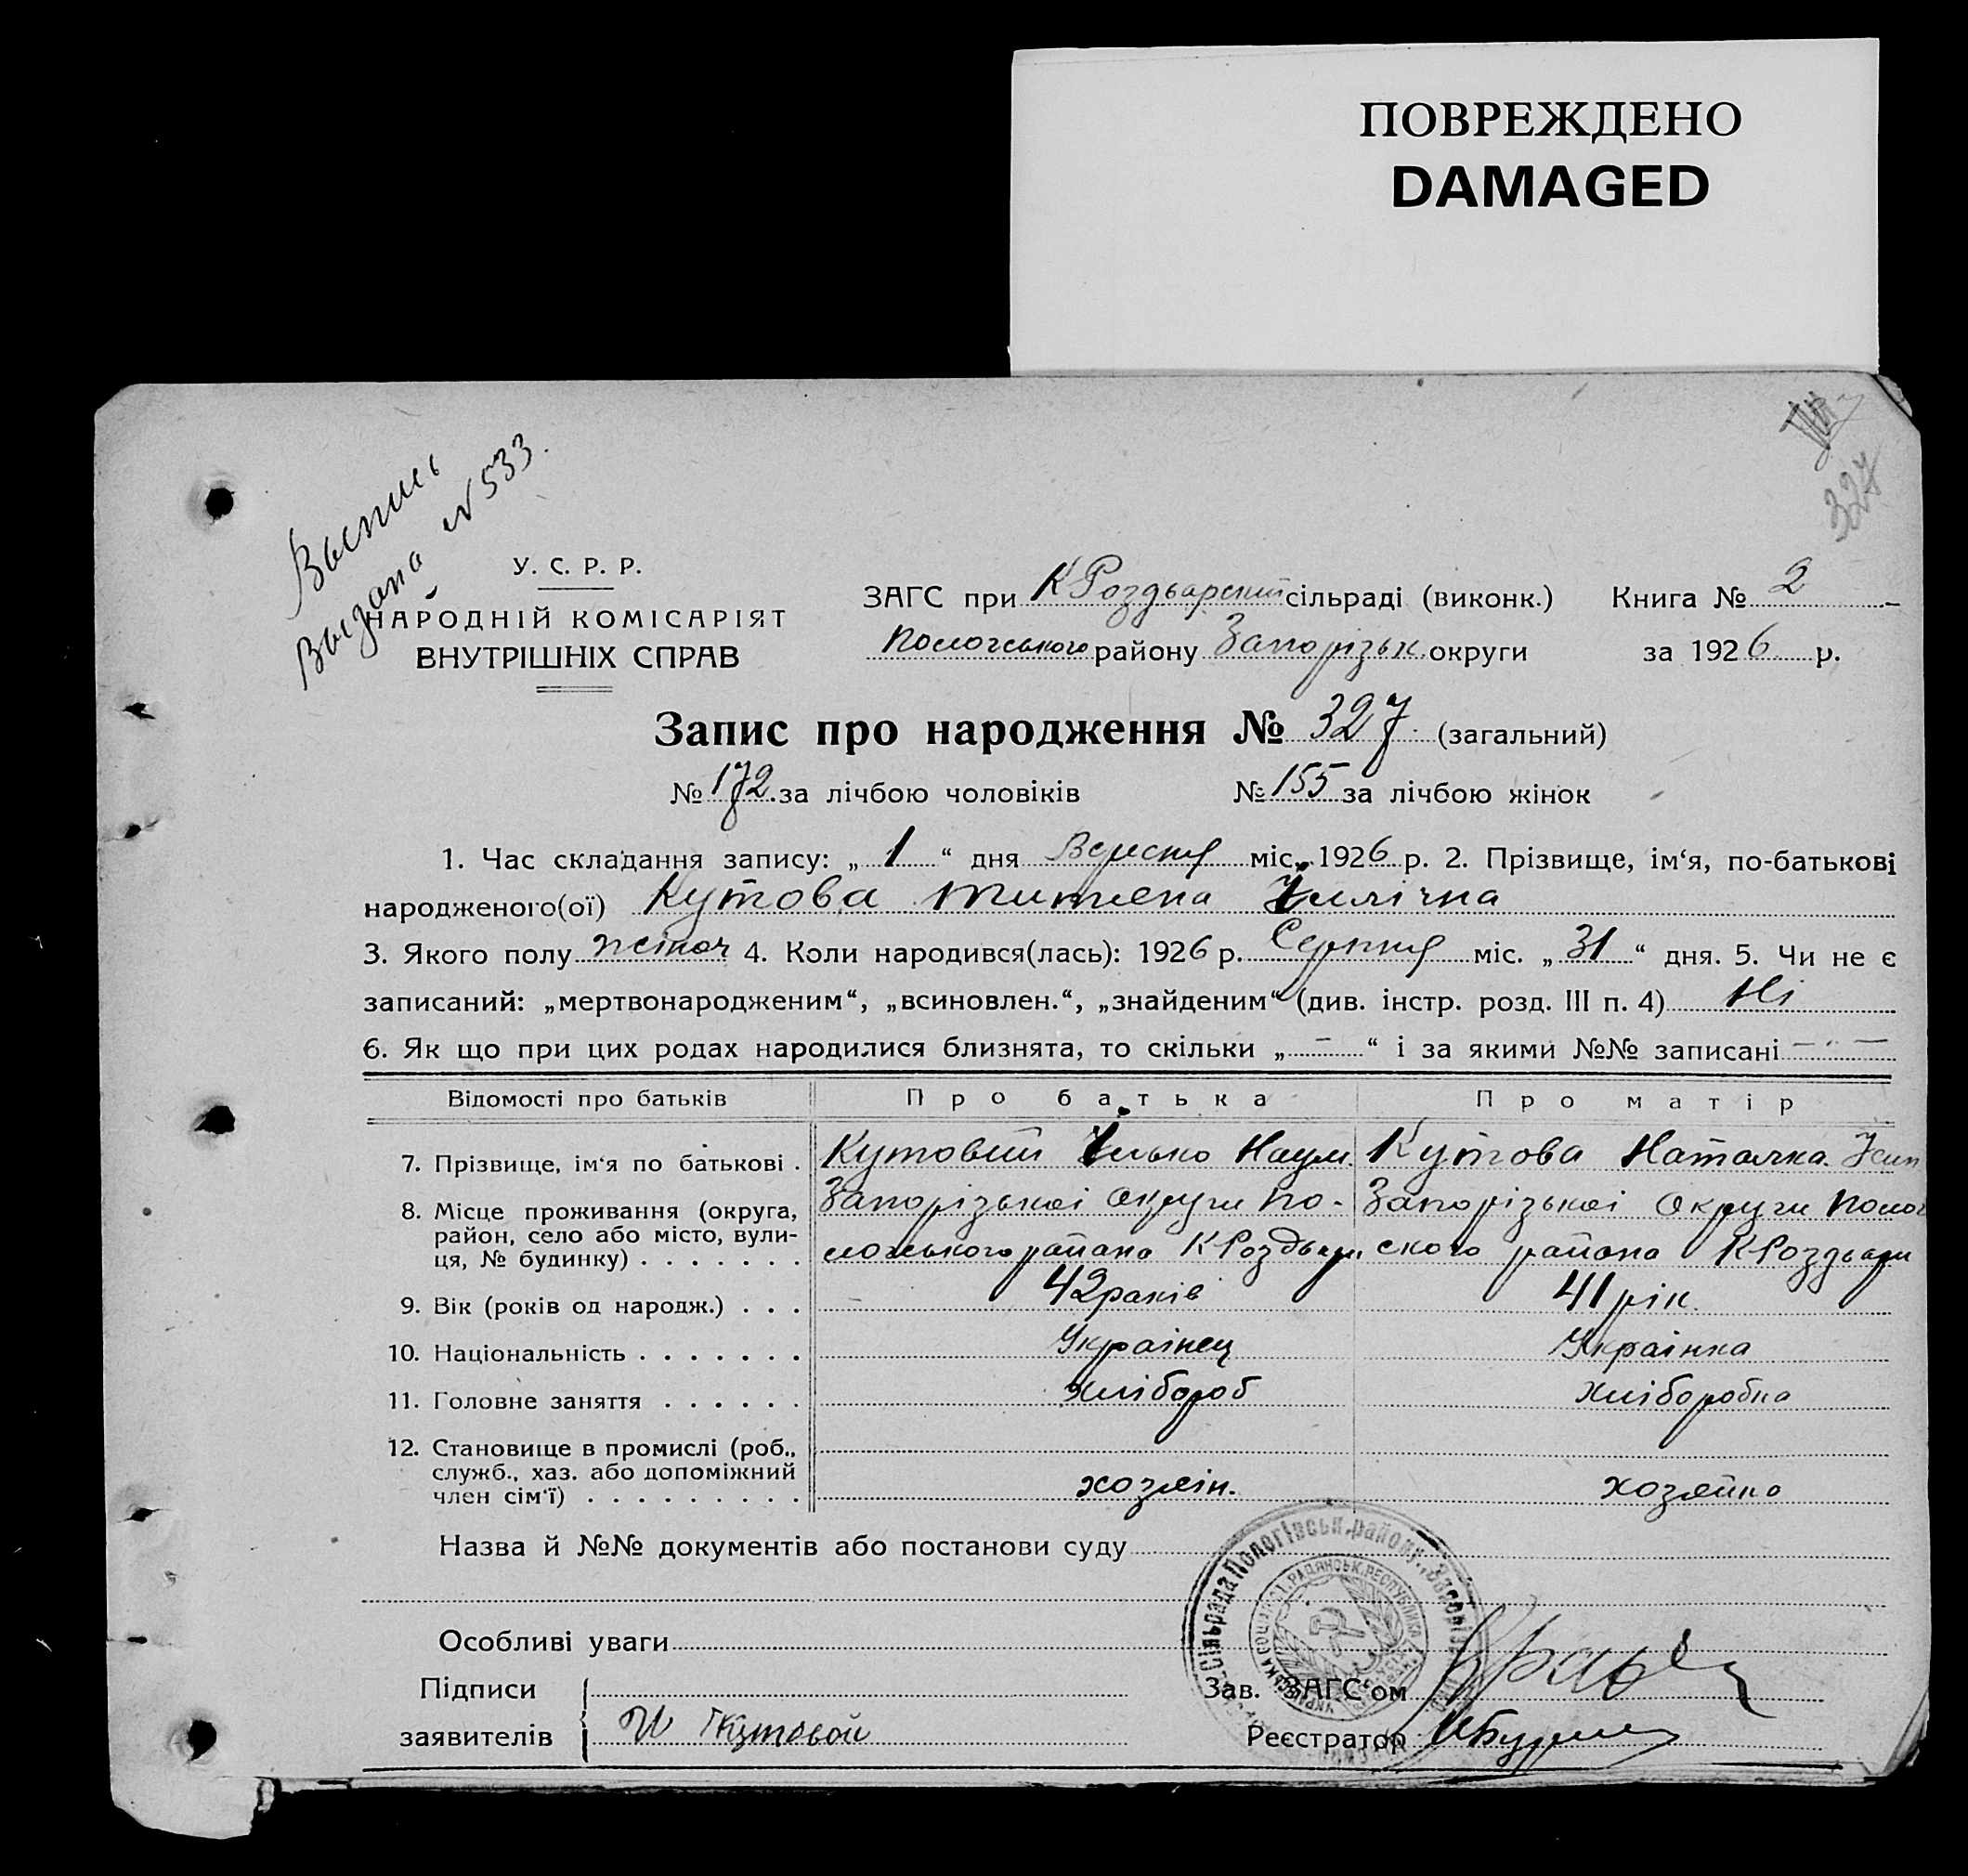 ПОВРЕЖДЕНО
DAMAGED
327
Выпись
Выдана N 533.
У. С. Р. Р.
НАРОДНІЙ КОМІСАРІЯТ
ВНУТРІШНІХ СПРАВ
ЗАГС при К Роздварский сільраді (виконк.) Книга № 2
Пологського району Запорізьк. округи за 1926 р.
Запис про народження № 327. (загальний)
№ 172. за лічбою чоловіків № 155 за лічбою жінок
1. Час складання запису: „ 1 “ дня Вересня міс. 1926 р. 2. Прізвище, ім‘я, по-батькові
народженого(ої) Кутова Ілічна
3. Якого полу жіноч 4. Коли народився(лась): 1926 р. Серпня міс. „ 31 “ дня. 5. Чи не є
записаний: „мертвонародженим“, „всиновлен.“, „знайденим“ (див. інстр. розд. III п. 4) Ні
6. Як що при цих родах народилися близнята, то скільки „ - “ і за якими №№ записані - · -
Відомості про батьків Про батька Про матір
7. Прізвище, ім‘я по батькові . Кутовий Ілько Наум. Кутова Наталка
8. Місце проживання (округа, Запорізькоі Округи По- Запорізькоі Округи Полог
район, село або місто, вули- логського района К Роздвар. ского района К Роздвари
ця, № будинку) . . . . . . .
9. Вік (років од народж.) . . . 42 раків 41 рік.
10. Національність . . . . . . . Украінец Украінка
11. Головне заняття . . . . . . хлібороб хліборобка
12. Становище в промислі (роб.,
служб., хаз. або допоміжний
член сім‘ї) . . . . . . . . . хозяін. хозяйка
Назва й №№ документів або постанови суду
Сільрада Пологівськ. району, Запоріз
Особливі уваги
Підписи Зав. ЗАГС‘ом
заявителів И Кутовой Реєстратор